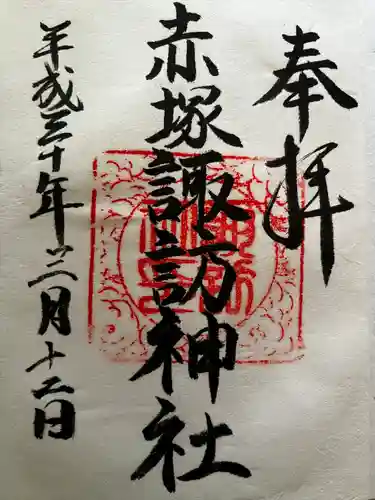 奉拝
赤塚諏訪神社
平成三十年十二月十二日